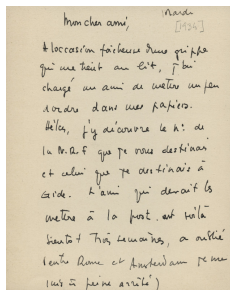 Mardi
[1934]
Mon cher ami,
A l'occasion fâcheuse d'une grippe
qui me tient au lit, j'ai
chargé un ami de mettre un peu
d'ordre dans mes papiers.
Hélas, j'y découvre le n° de
la N.R.F que je vous destinais
et celui que je destinais à
Gide. L'ami qui devait les
mettre à la poste, voilà
bientôt trois semaines, a oublié
(entre Rome et Amsterdam je me
suis à peine arrêté)